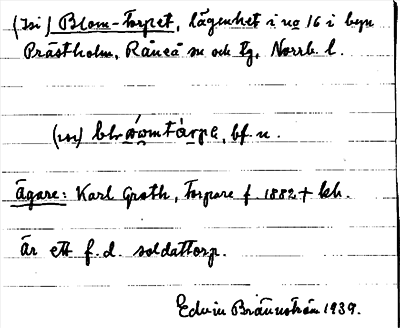 (Isi) Blom-Torpet, lägenhet i no 16 i byn
Prästholm, Råneå sn och tg, Norrb. l.
bf. n.
Ägare: Karl Groth, Torpare f. 1882 + kh.
Är ett f.d. soldattorp.
Edvin Brännström 1939.